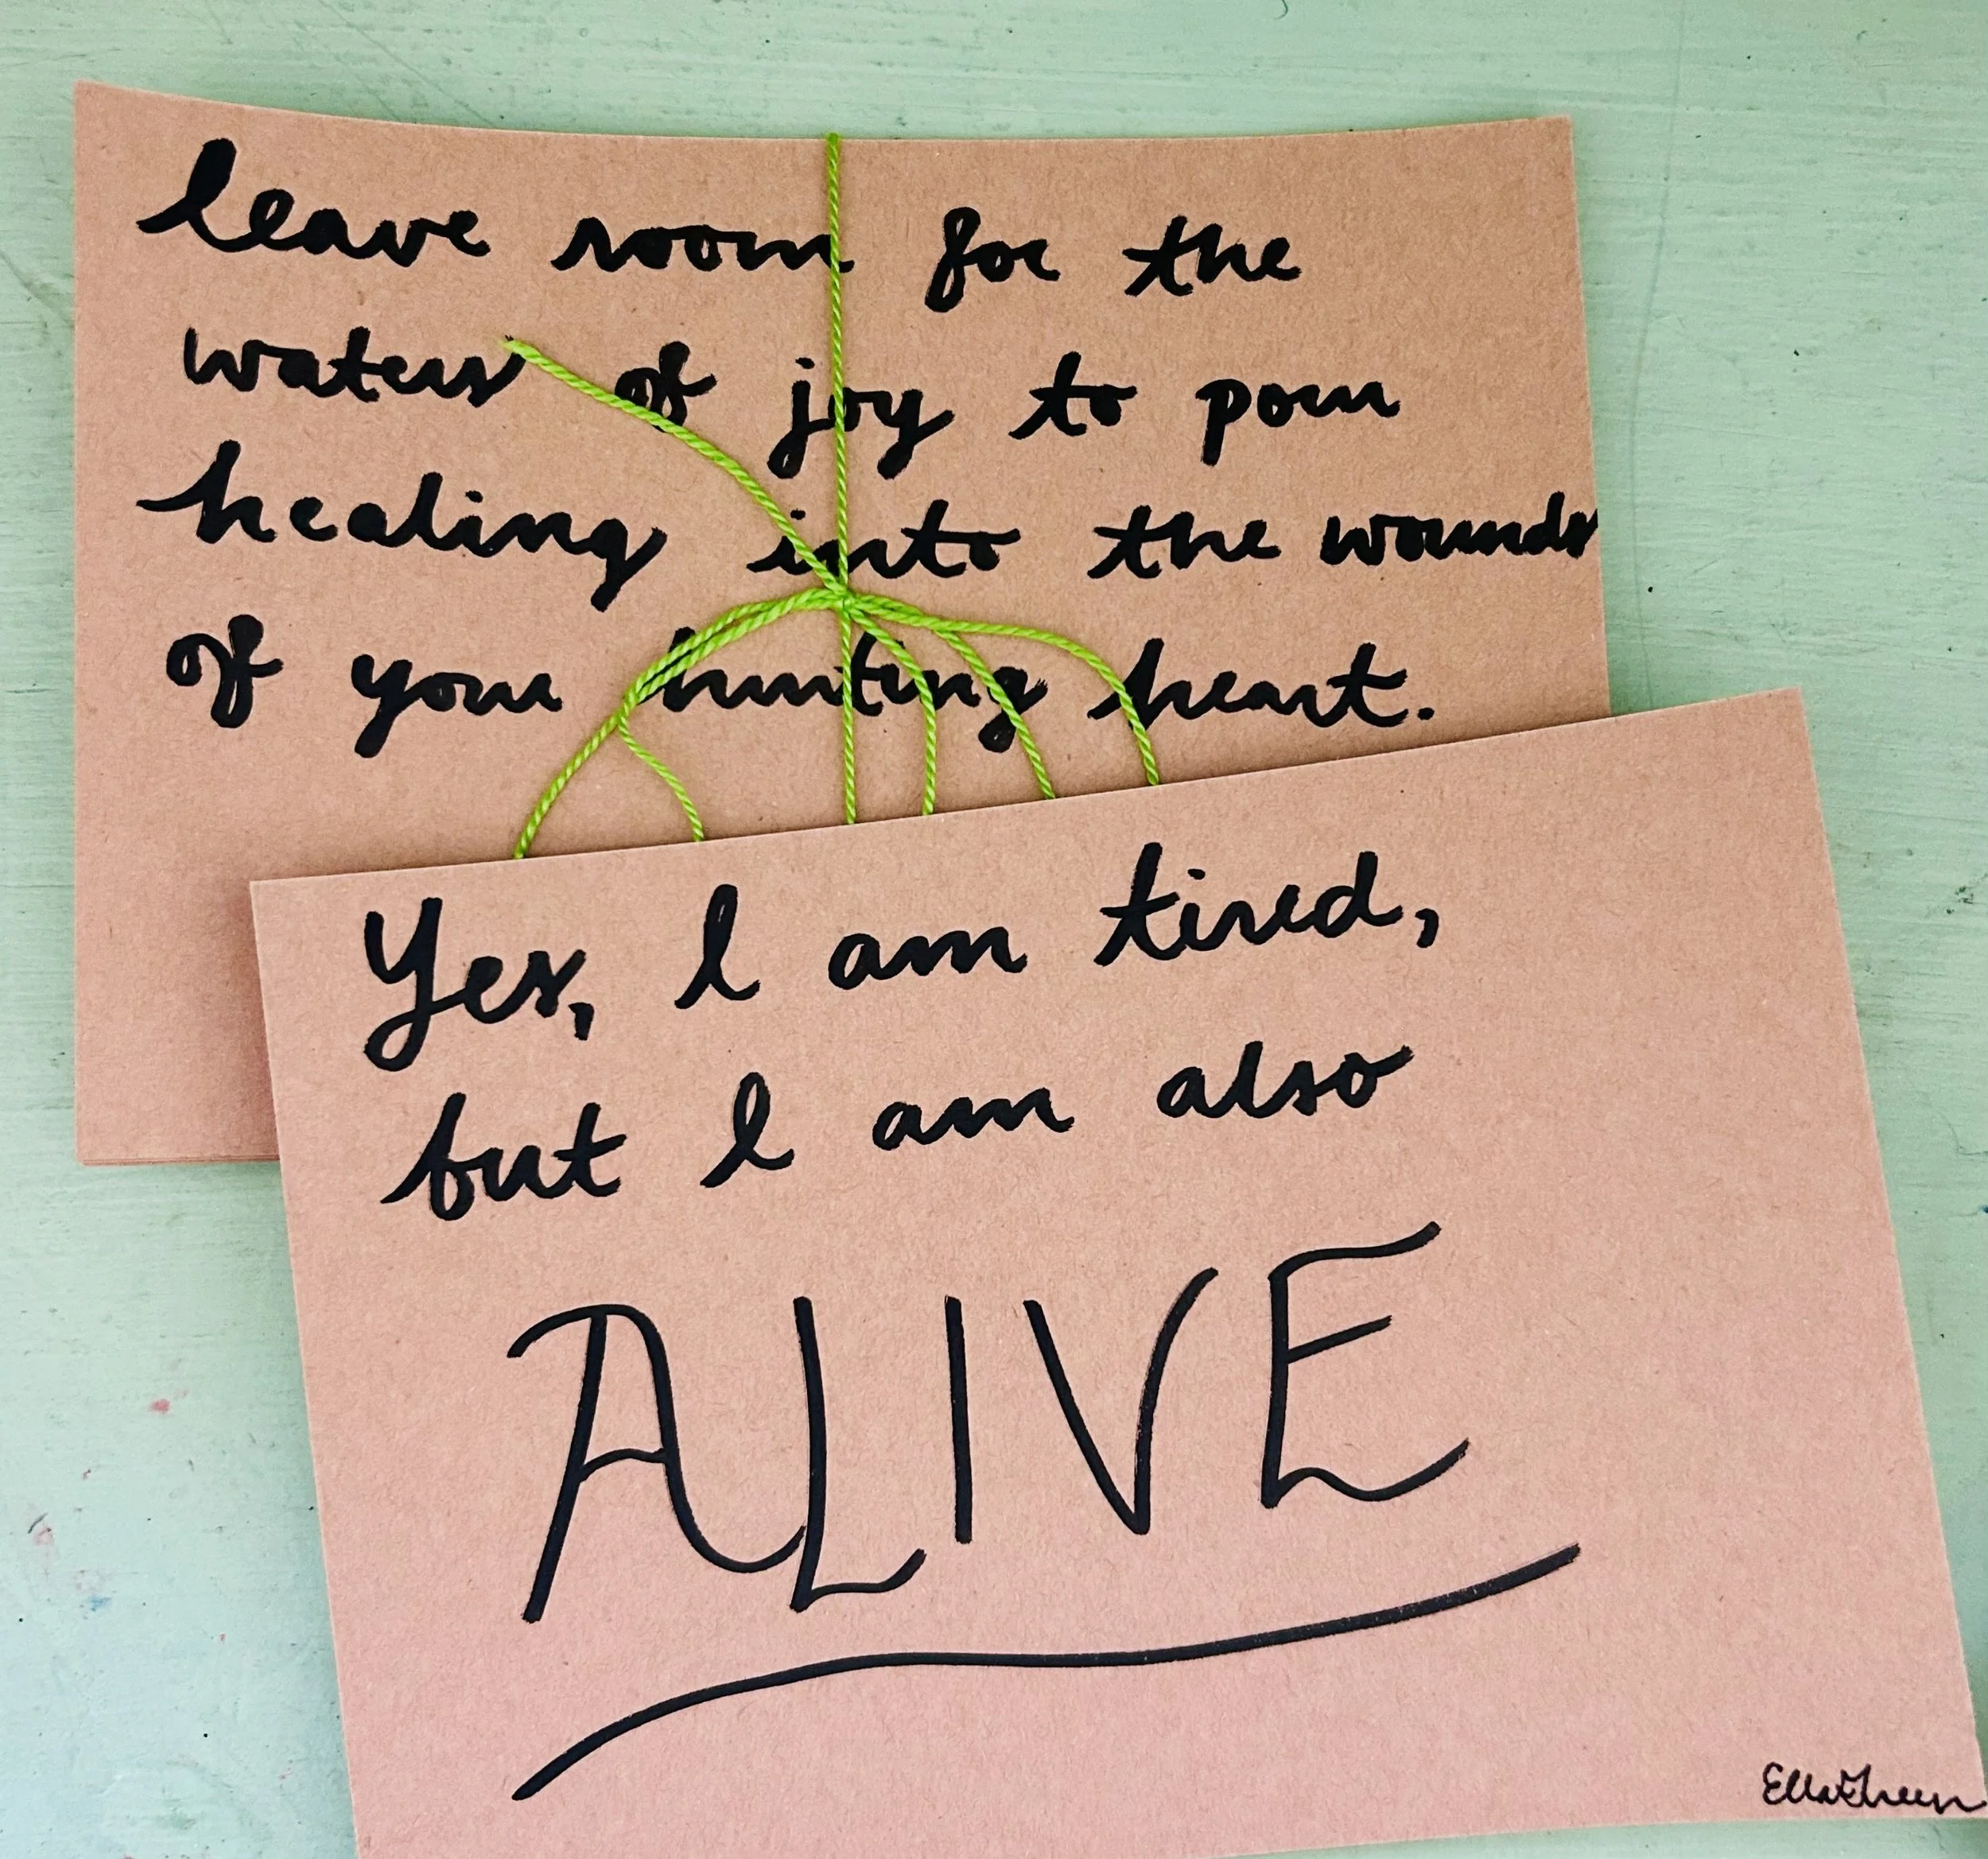 leave room for the
waters of joy to pour
healing into the wounds
of your hurting heart.
Yes, I am tired,
but I am also
ALIVE